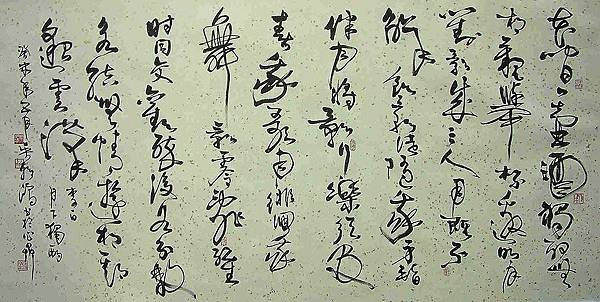 花間一壺酒獨酌無
相親舉杯邀明月
對影成三人月既不
解飲影徒隨我身暫
伴月將影行樂須及
春我歌月徘徊我
舞影零亂醒
時同交歡醉後各分散
永結無情遊相期
邈雲漢李白
月下獨酌
癸未年